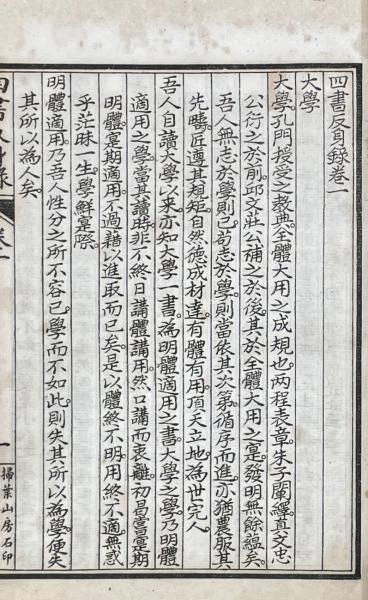 四書反身錄卷一
大學
大學孔門授受之教典全體大用之成規也两程表章朱子闡繹真文忠
公衍之於前邱文莊公補之於後其於全體大用之寔發明無餘蘊矣
吾人無志於學則已苟志於學則當依其次第循序而進亦猶農服其
先疇匠遵其規矩自然德成材達有體有用頂天立地為世完人
吾人自讀大學以來亦知大學一書為明體適用之書大學之學乃明體
適用之學當其讀時非不終日講體講用然口講而衷離初曷嘗寔期
明體寔期適用不過藉以進取而已矣是以體終不明用終不適無惑
乎茫昧一生學鮮寔際
明體適用乃吾人性分之所不容已學而不如此則失其所以為學便失
其所以為人矣
四書反身錄
卷一
一
掃葉山房石印